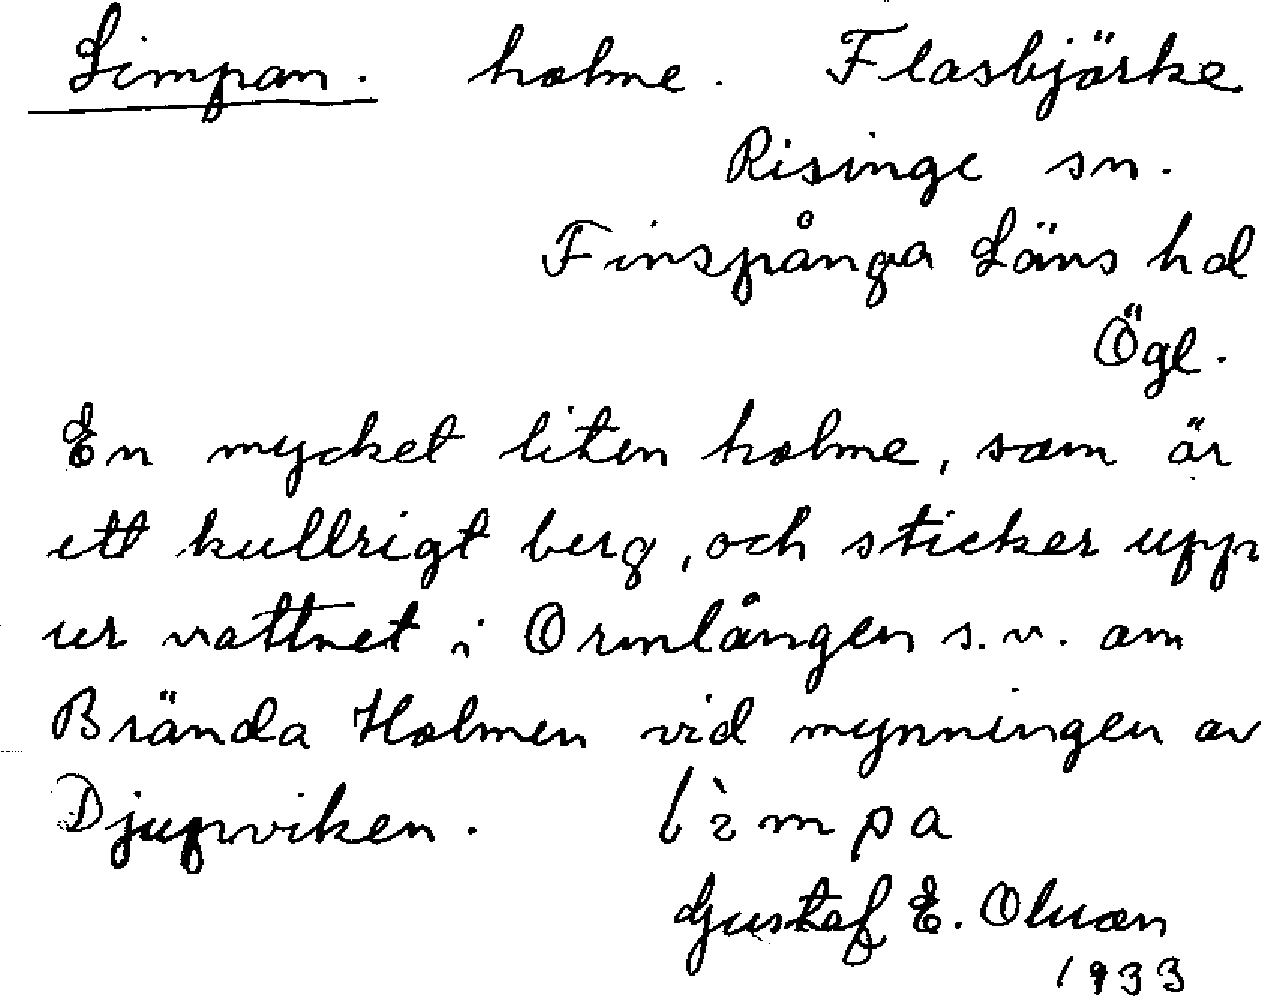 Limpan. holme. Flasbjörke
Risinge sn.
Finspånga Läns hd
Ögl.
En mycket liten holme, som är
ett kullrigt berg, och sticker upp
ur vattnet i Ormlången s.v. om
Brända Holmen vid mynningen av
Djupviken. lìmpa
Gustaf E. Olson
1933